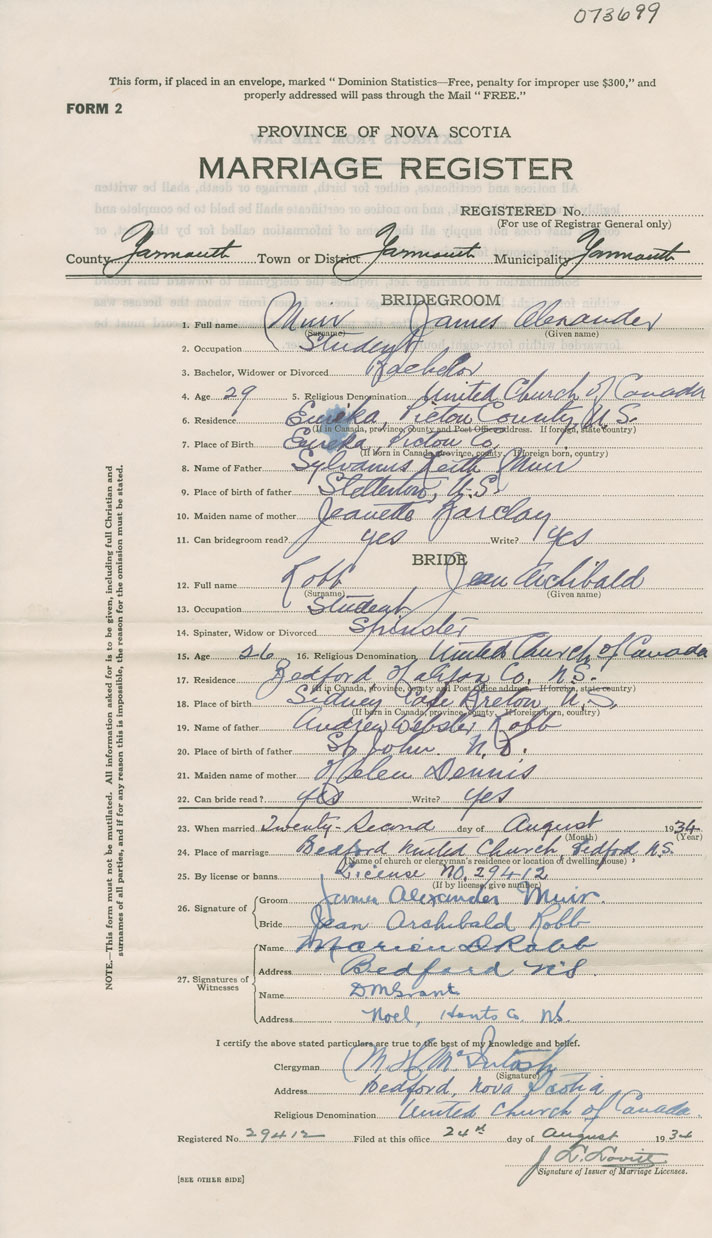 073699
This form, if placed in an envelope, marked "Dominion Statistics—Free, penalty for improper use $300," and
properly addressed will pass through the Mail "FREE."
FORM 2
PROVINCE OF NOVA SCOTIA
MARRIAGE REGISTER
REGISTERED No.
(For use of Registrar General only)
County Yarmouth Town or District Yarmouth Municipality Yarmouth
BRIDEGROOM
1. Full name Muir James Alexander
(Surname) (Given name)
2. Occupation Student
3. Bachelor, Widower or Divorced Bachelor
4. Age 29 5. Religious Denomination United Church of Canada
6. Residence Eureka, Pictou County, N.S.
(If in Canada, province, county and Post Office address. If foreign, state country)
7. Place of Birth Eureka, Pictou Co.
(If born in Canada, province, county. If foreign born, country)
8. Name of Father Sylvanus Keith Muir
9. Place of birth of father Stellerton, N.S.
10. Maiden name of mother Jeanette Barclay
11. Can bridegroom read? yes Write? yes
BRIDE
12. Full name Robb Jean Archibald
(Surname) (Given name)
13. Occupation Student
14. Spinster, Widow or Divorced Spinster
15. Age 26 16. Religious Denomination United Church of Canada
17. Residence Bedford Halifax Co. N.S.
(If in Canada, province, county and Post Office address. If foreign, state country)
18. Place of birth Sidney Cape Breton, N.S.
(If born in Canada, province, county. If foreign born, country)
19. Name of father Andrew Webster Robb
20. Place of birth of father St. John. N.B.
21. Maiden name of mother Helen Dennis
22. Can bride read? yes Write? yes
23. When married Twenty-Second day of August 1934
(Month) (Year)
24. Place of marriage Bedford United Church, Bedford N.S.
(Name of church or clergyman's residence or location of dwelling house)
25. By license or banns License No. 29412
(If by license, give number)
26. Signature of Groom James Alexander Muir.
Bride Jean Archibald Robb
27. Signatures of Witnesses Name Marion D Robb
Address Bedford N.S.
Name D M Grant
Address Noel, Hants Co. N.S.
I certify the above stated particulars are true to the best of my knowledge and belief.
Clergyman M H McIntosh
(Signature)
Address Bedford, Nova Scotia
Religious Denomination United Church of Canada
Registered No. 29412 Filed at this office 24th day of August 1934
J. L. Lovitt
Signature of Issuer of Marriage Licenses.
[SEE OTHER SIDE]
NOTE.—This form must not be mutilated. All information asked for is to be given, including full Christian and
surnames of all parties, and if for any reason this is impossible, the reason for the omission must be stated.